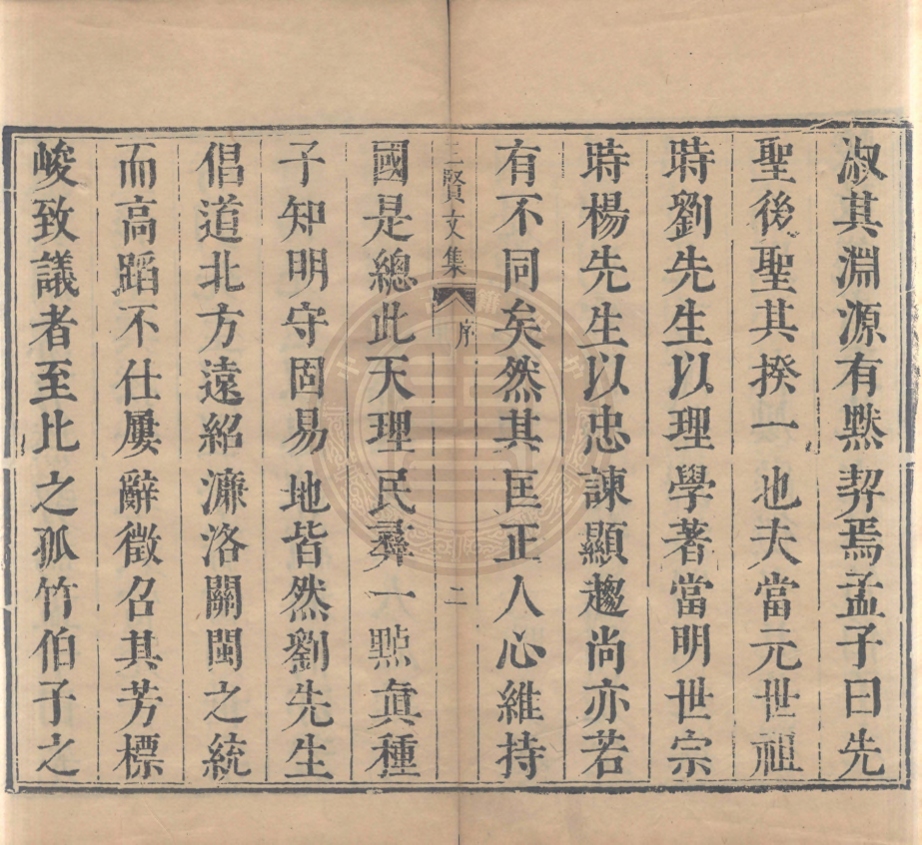 淑其淵源有黙契焉孟子曰先
聖後聖其揆一也夫當元世祖
時劉先生以理學著當明世宗
時楊先生以忠諫顯趨尚亦若
有不同矣然其匡正人心維持
三賢文集 序 二
國是總此天理民彛一㸃眞種
子知明守固易地皆然劉先生
倡道北方遠紹濂洛關閩之統
而高蹈不仕屢辭徵召其芳標
峻致議者至比之孤竹伯子之